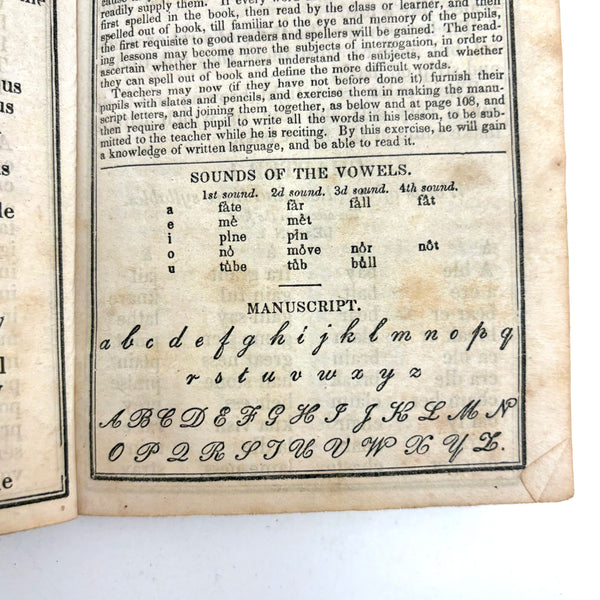 readily supply them. If every wor
first spelled in the book, then read by the class or learner, and then
spelled out of book, till familiar to the eye and memory of the pupils,
the first requisite to good readers and spellers will be gained. The read-
ing lessons may become more the subjects of interrogation, in order to
ascertain whether the learners understand the subjects, and whether
they can spell out of book and define the more difficult words.
Teachers may now (if they have not before done it) furnish their
pupils with slates and pencils, and exercise them in making the manu-
script letters, and joining them together, as below and at page 108, and
then require each pupil to write all the words in his lesson, to be sub-
mitted to the teacher while he is reciting. By this exercise, he will gain
a knowledge of written language, and be able to read it.
SOUNDS OF THE VOWELS.
1st sound. 2d sound. 3d sound. 4th sound.
a fate far fall fat
e me met
i pine pin
o no move nor not
u tube tub bull
MANUSCRIPT.
a b c d e f g h i j k l m n o p q
r s t u v w x y z
A B C D E F G H I J K L M N
O P Q R S T U V W X Y Z.